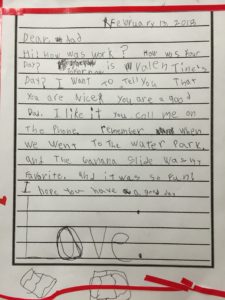 February 13, 2018
Dear Dad
Hi! How was work? How was your
Day? is valentine's
Day? I want to tell you that
You are Nice! You are a good
Dad. I like it you call me on
The Phone. remember when
we went to the water Park,
and the banana Slide was my
Favorite. And it was so fun!
I hope you have a good day
Love.